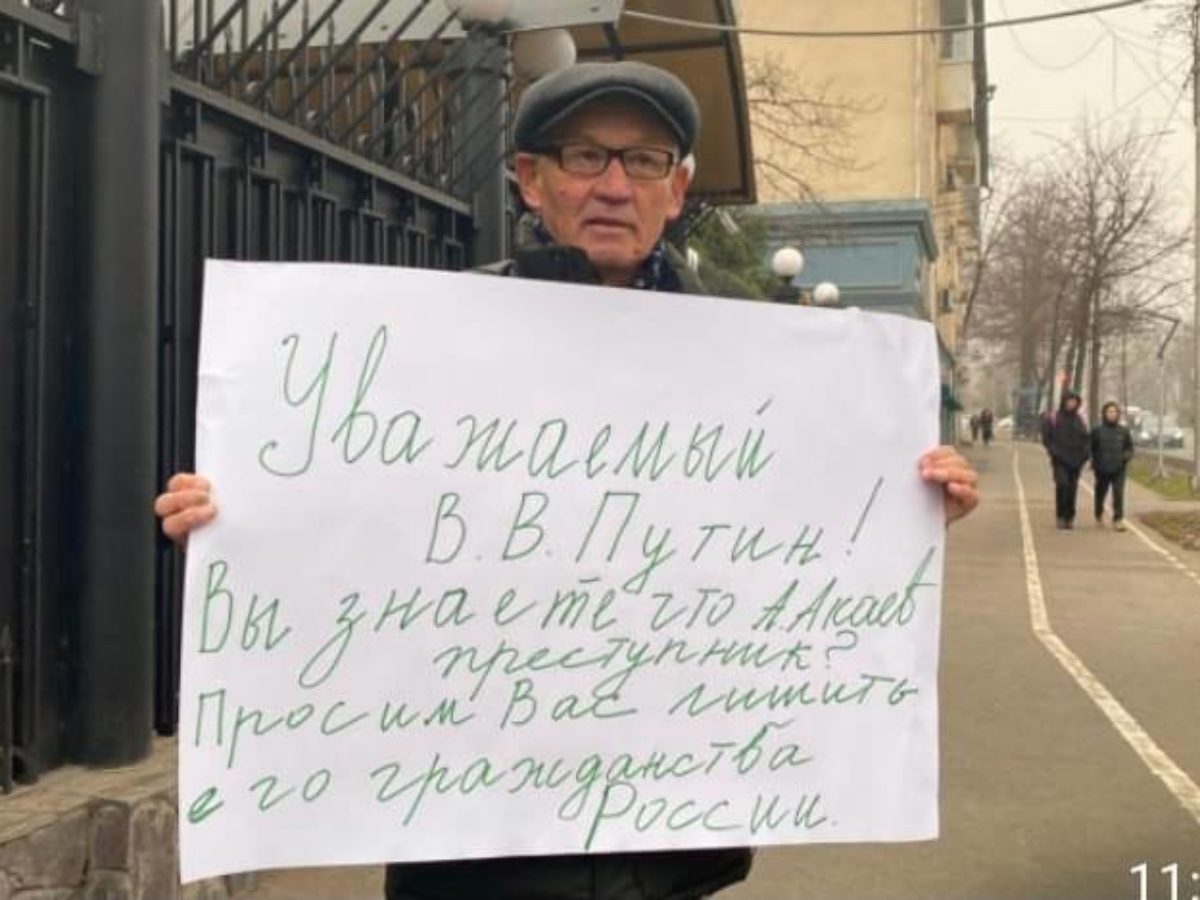 Уважаемый
В.В. Путин!
Вы знаете что А.Акаев
преступник?
Просим Вас лишить
его гражданства
России.
11: